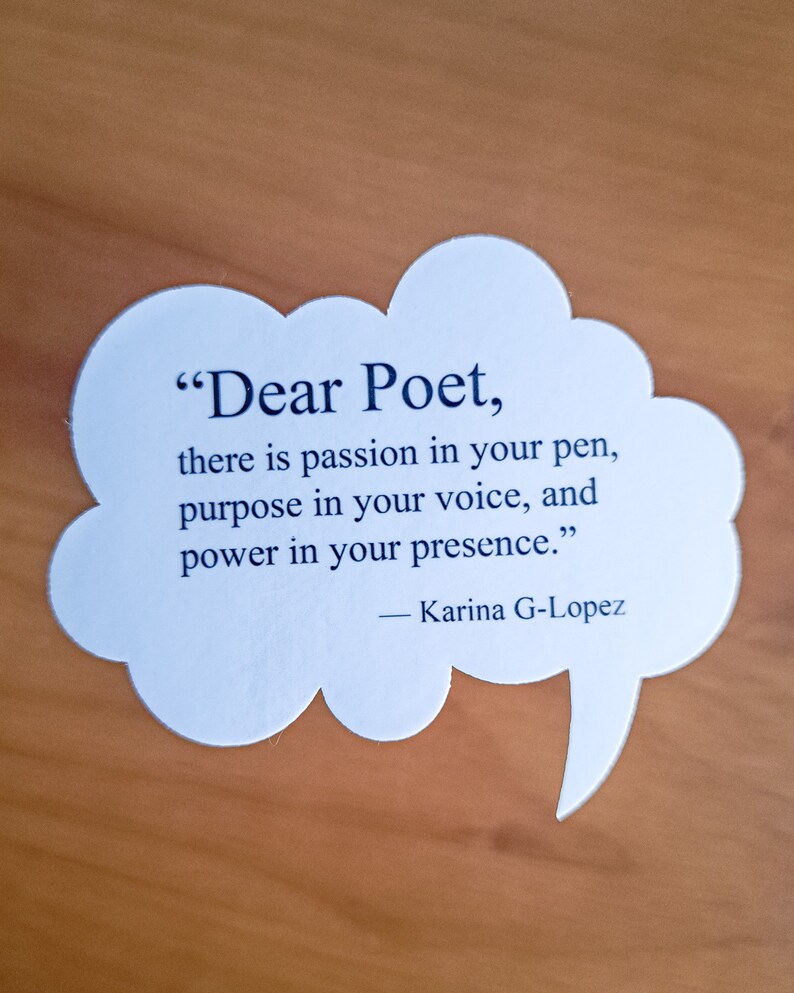 “Dear Poet,
there is passion in your pen,
purpose in your voice, and
power in your presence.”
— Karina G-Lopez